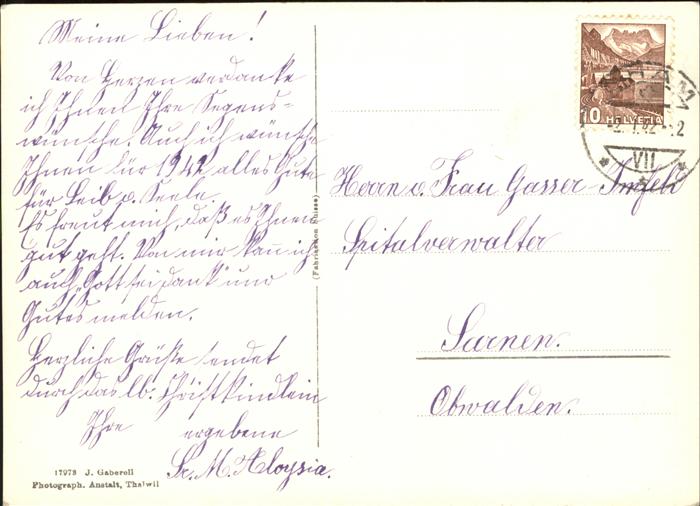 Meine Lieben!
Von Herzen verdanke
ich Ihnen Ihre Segens-
wünsche. Auch ich wünsche
Ihnen für 1942 alles Gute
für Leib u. Seele.
Es freut mich, daß es Ihnen
gut geht. Von mir kann ich
auch "Gott sei Dank" nur
Gutes melden.
Herzliche Grüße sendet
durch das lb. Christkindlein
Ihre ergebene
Sr. M. Aloysia.
17978 J. Gaberell
Photograph. Anstalt, Thalwil
(Fabrikation Suisse)
10 HELVETIA
CHAM
VII
Herrn u. Frau Gasser-Imfeld
Spitalverwalter
Sarnen.
Obwalden.